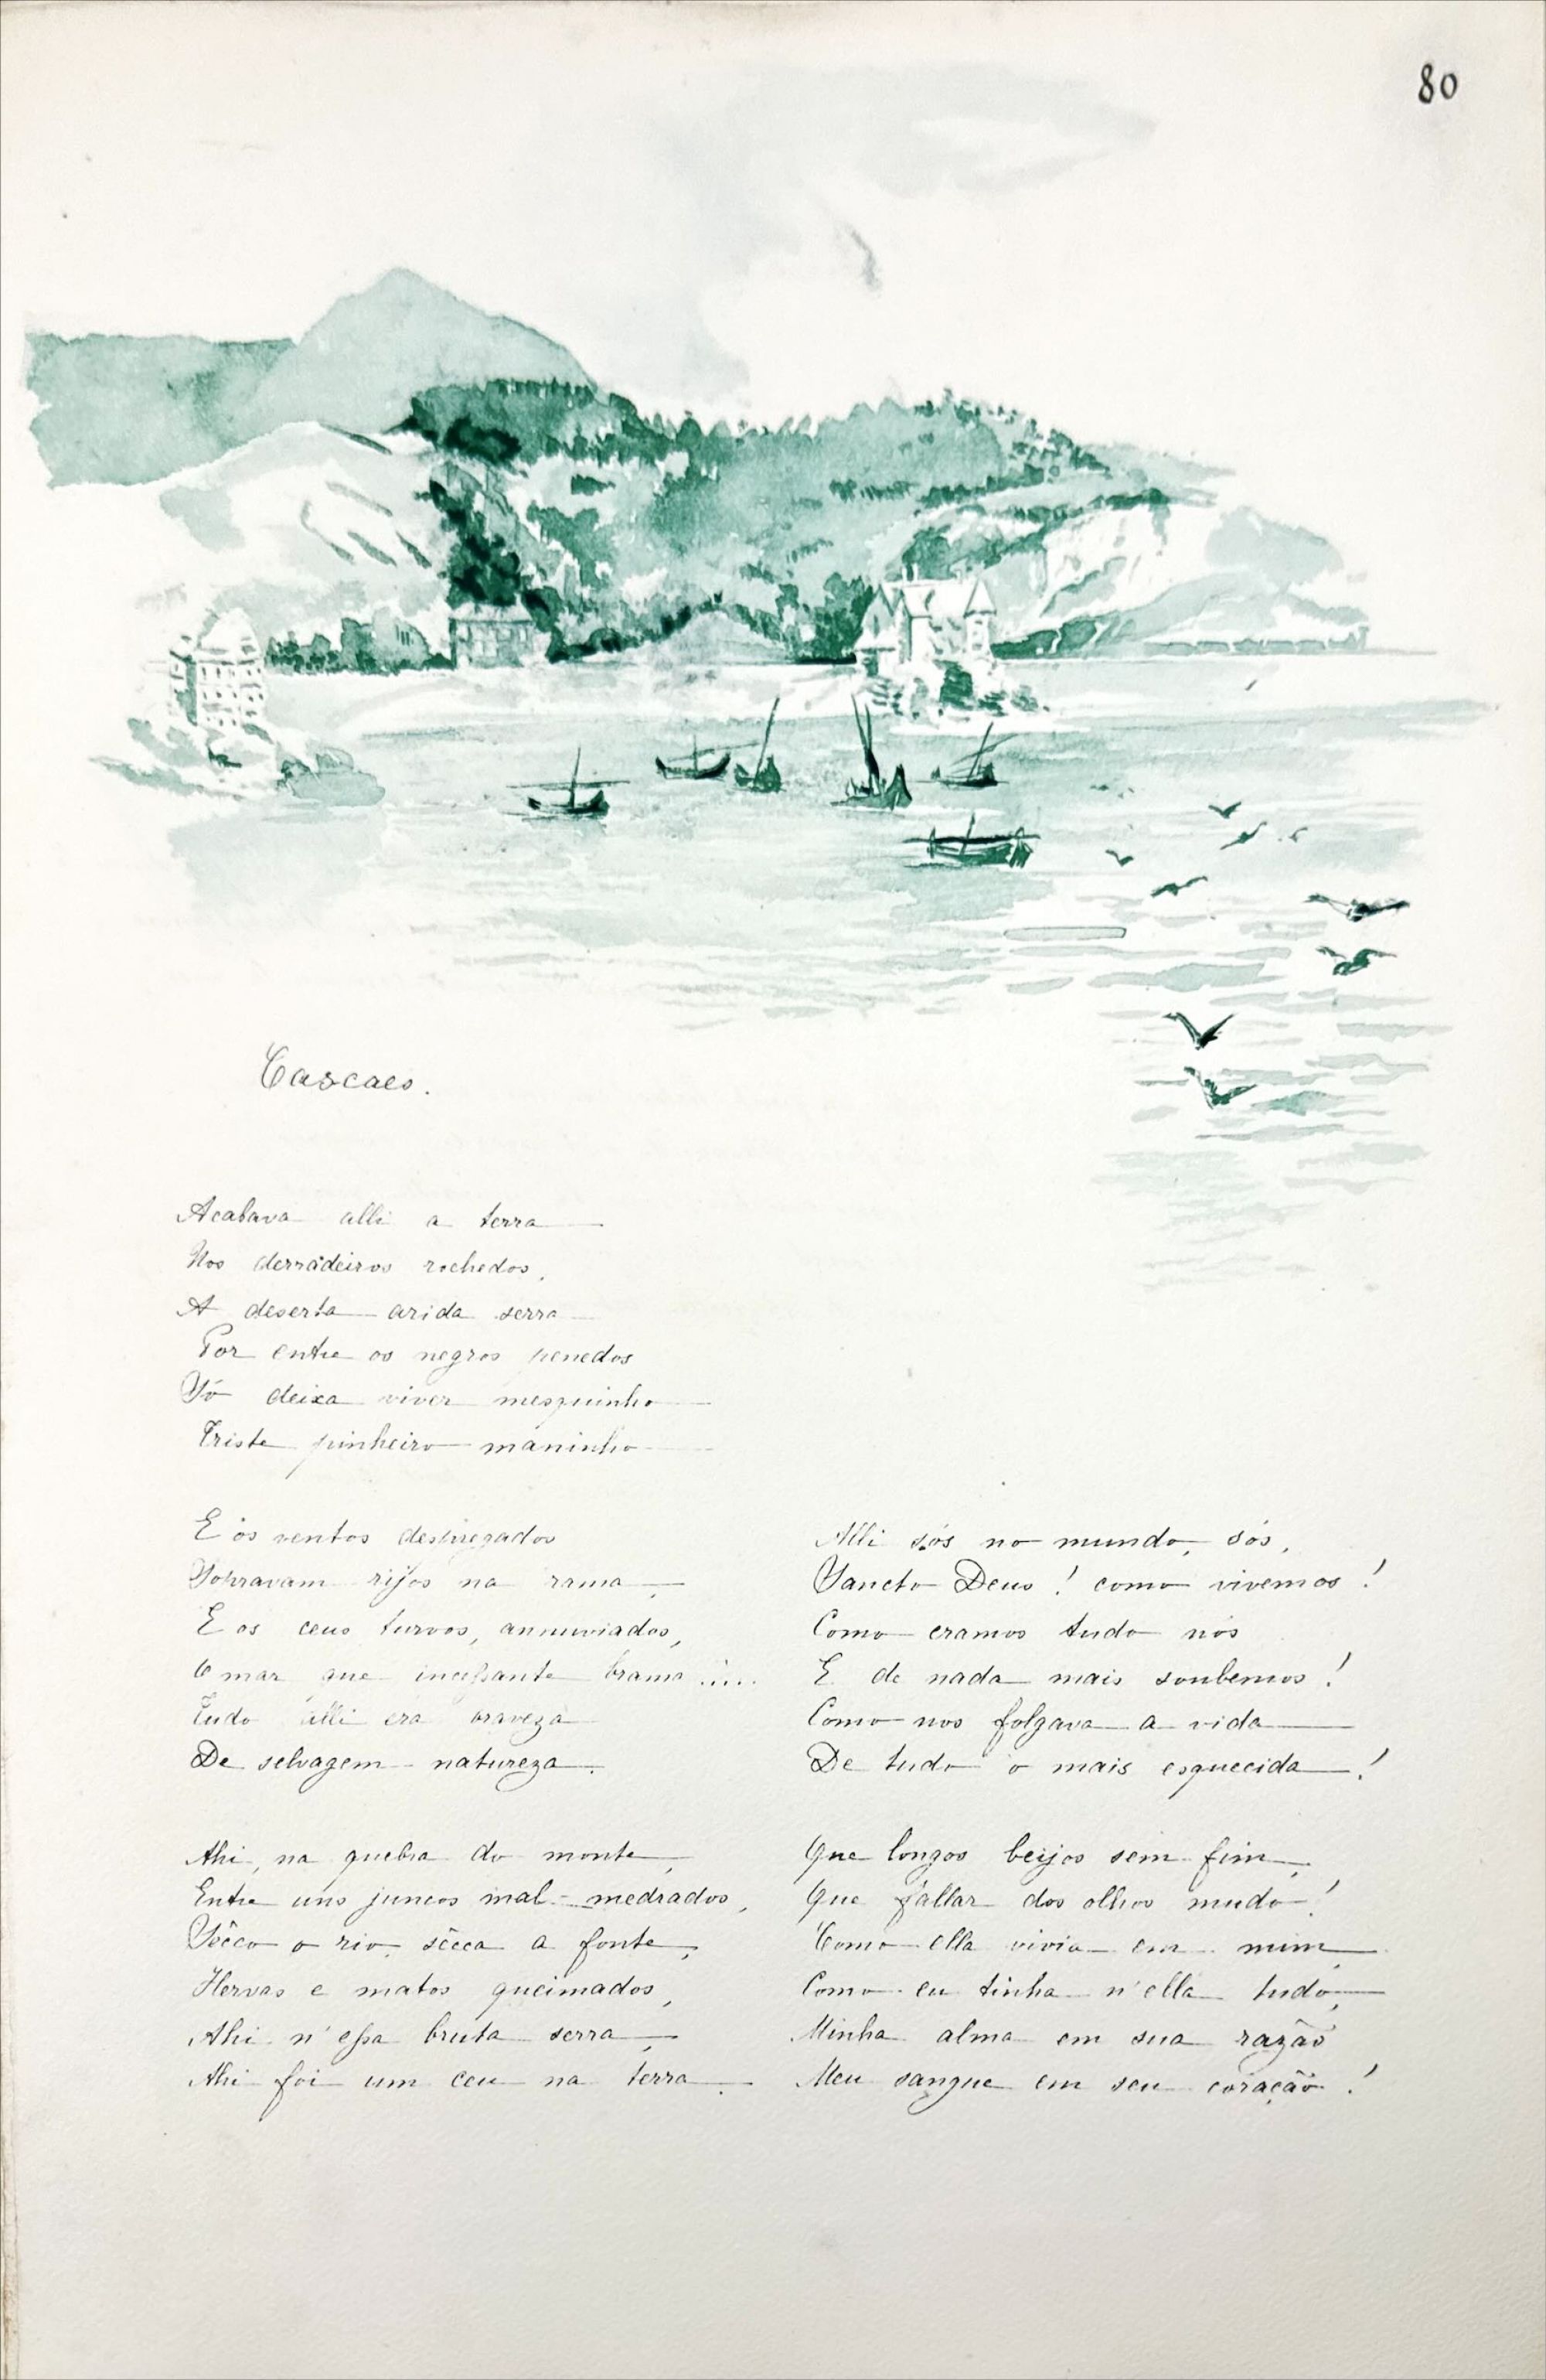 80
Cascaes.
Acabava alli a terra
Nos derradeiros rochedos,
A deserta arida serra
Por entre os negros penedos
Só deixa viver mesquinho
Triste pinheiro maninho
E os ventos despregados
Sopravam rijos na rama,
E os ceus turvos, annuviados,
O mar que incessante brama.....
Tudo alli era braveza
De selvagem natureza.
Ahi, na quebra do monte,
Entre uns juncos mal-medrados,
Sêcco o rio, sêcca a fonte,
Hervas e matos queimados,
Ahi n'essa bruta serra,
Ahi foi um ceu na terra.
Alli sós no mundo, sós,
Sancto Deus! como vivemos!
Como eramos tudo nós
E de nada mais soubemos!
Como nos folgava a vida
De tudo o mais esquecida!
Que longos beijos sem fim,
Que fallar dos olhos mudo!
Como ella vivia em mim,
Como eu tinha n'ella tudo,
Minha alma em sua razão
Meu sangue em seu coração!